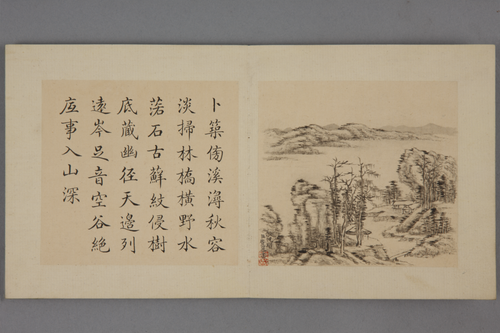 卜築傍溪潯秋容
淡掃林橋橫野水
落石古蘚紋侵樹
底藏幽徑天邊列
遠岑足音空谷絕
底事入山深